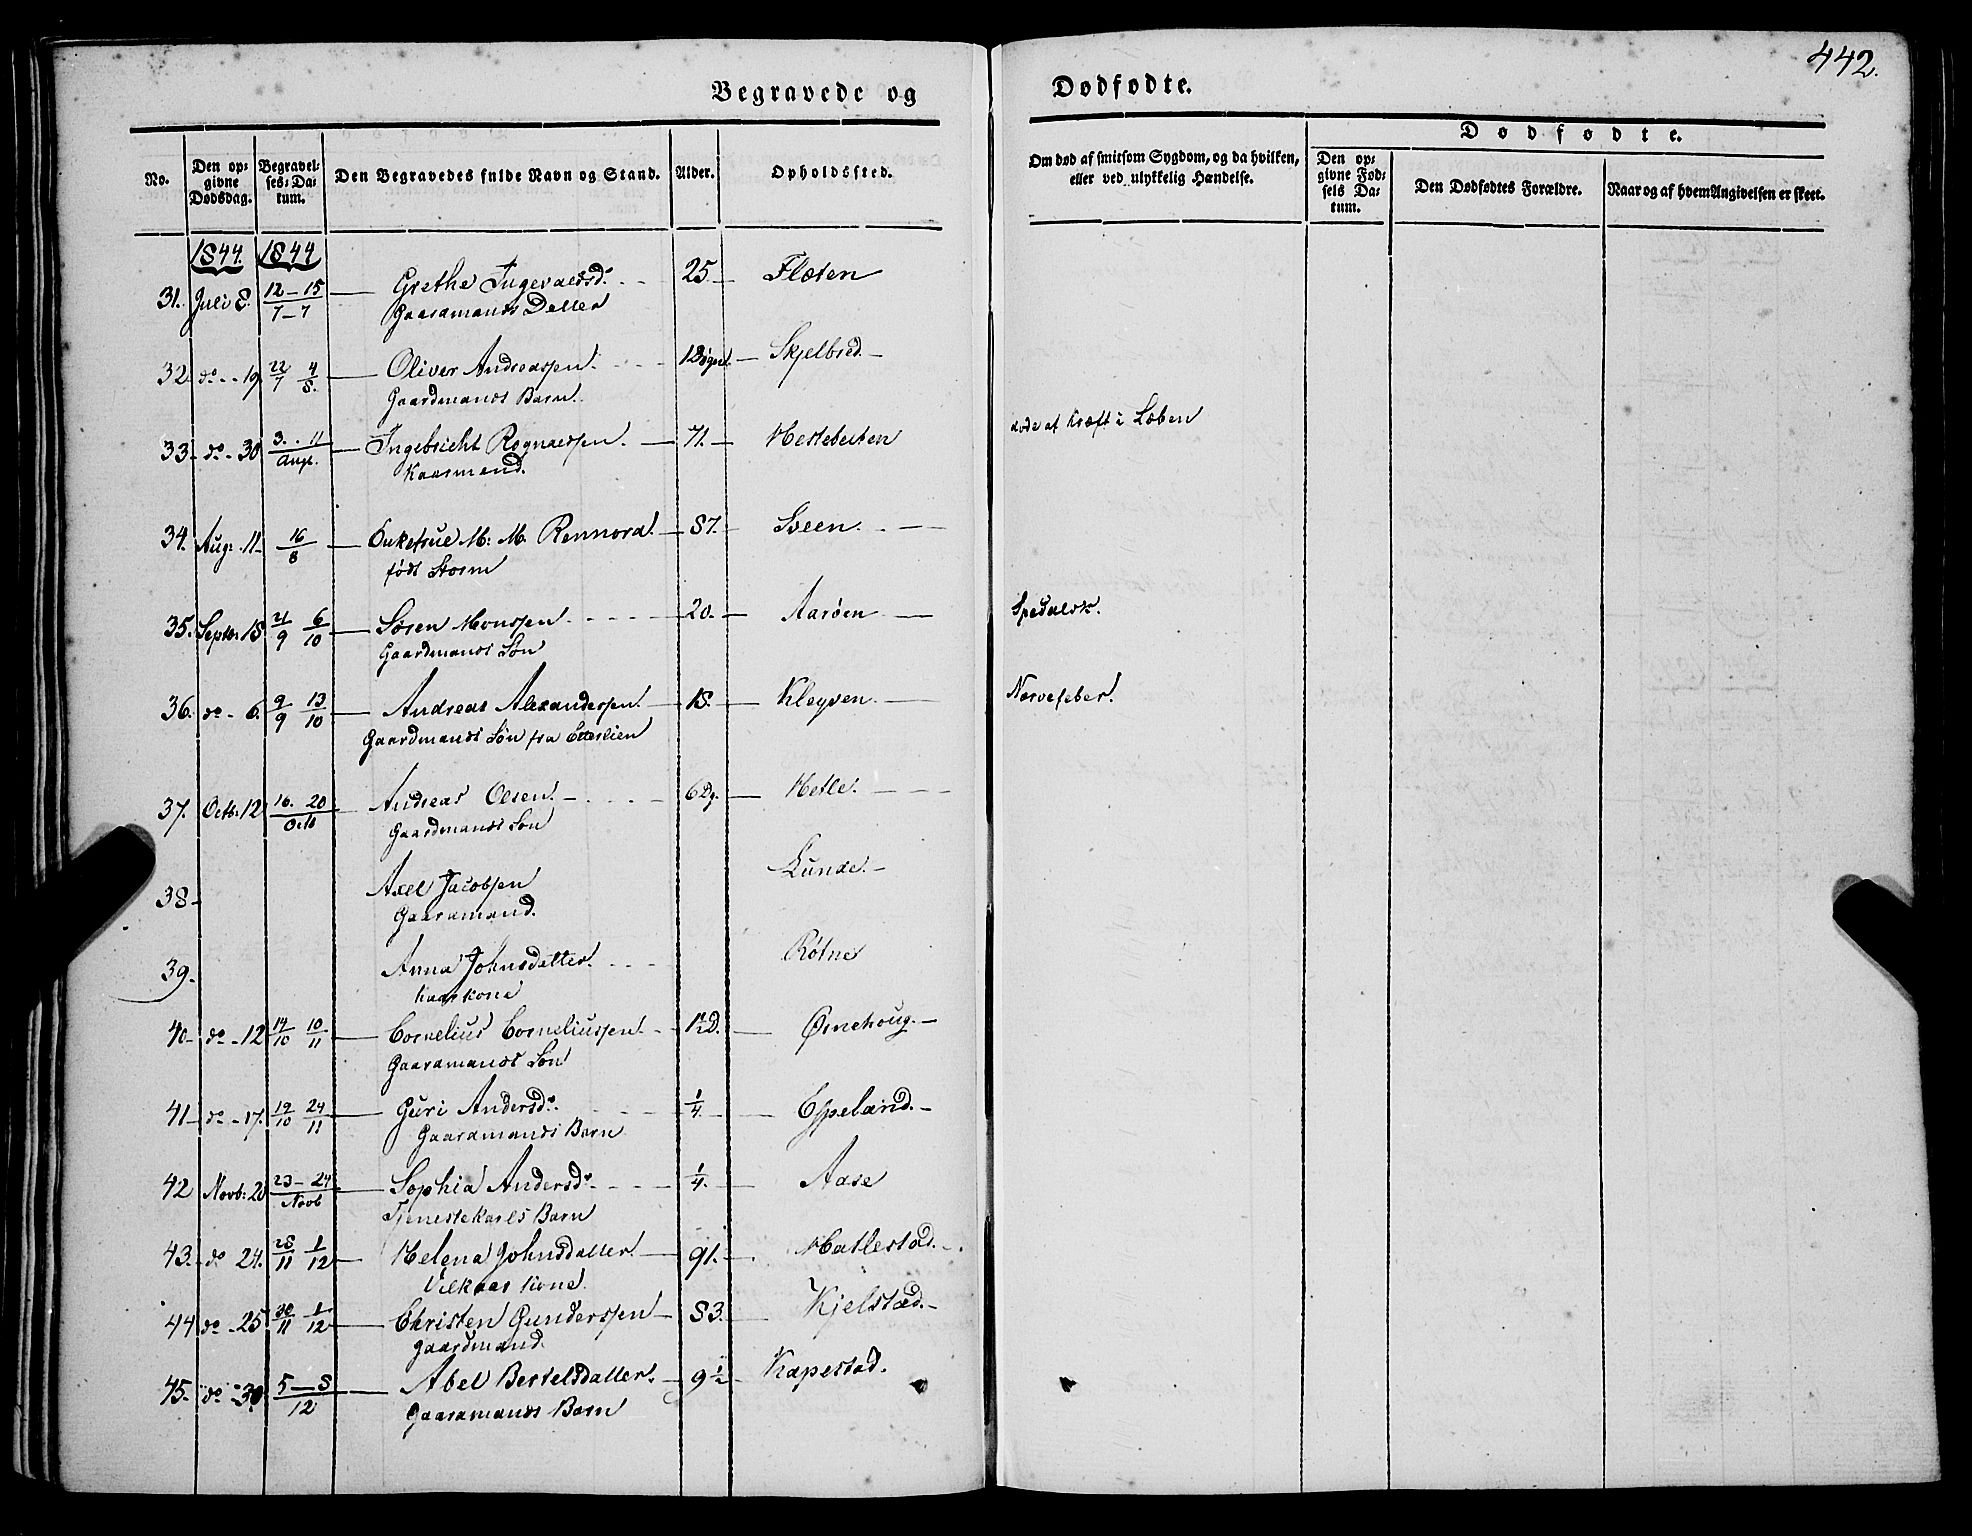 442.
Begravede og Dødfødte.
No.
Den op-
givne
Dødsdag.
Begravel-
ses-Da-
tum.
Den Begravedes fulde Navn og Stand.
Alder.
Opholdssted.
Om død af smitsom Sygdom, og da hvilken,
eller ved ulykkelig Hændelse.
Dødfødte.
Den op-
givne Fød-
sels Da-
tum.
Den Dødfødtes Forældre.
Naar og af hvem Angivelsen er skeet.
1844. 1844
31. Juli 8. 12-15 / 7-7 Grethe Ingevaldsd. 25 Flæten
Gaardmands Datter
32. do 19. 22/7 4/8. Oliver Andreassen. 1 Døgn Skjelbred
Gaardmands Barn.
33 do 30 3. 11 / Augt. Ingebricht Rognaldsen. 71. Hestebeiten død af Kræft i Læben
Kaarmand.
34. Aug: 11. 16/8 Enkefrue M: M. Rennord. 87. Sveen.
født Storm
35. Septb: 15. 21/9 6/10 Søren Monssen 20. Aarøen Spedalsk.
Gaardmands Søn
36. do 6. 9/9 13/10 Andreas Alexandersen. 18. Kleyven. Nervefeber.
Gaardmands Søn fra Etterlien
37. Octb: 12 16. 20 / Octb Andreas Olsen. 6 Dg. Hetle.
Gaardmands Søn
38 Axel Jacobsen Lunde.
Gaardmand.
39. Anna Johnsdatter. Røtne
Kaarkone
40 do 12 14/10 10/11 Cornelius Corneliussen. 1½ D. Ørnehoug.
Gaardmands Søn
41 do 17. 19/10 24/11 Guri Andersd. ¼. Espeland.
Gaardmands Barn
42 Novb: 20 23-24 / Novb Sophia Andersd. ¼. Aase
Tjenestekarls Barn
43. do 24. 28/11 1/12 Helena Johnsdatter. 91. Hatlestad.
Vilkaars Kone.
44 do 25 30/11 1/12 Christen Gunderssen 83. Kjelstad.
Gaardmand.
45. do 30 5-8 / 12 Abel Bertelsdatter. 9½ Kapestad.
Gaardmands Barn